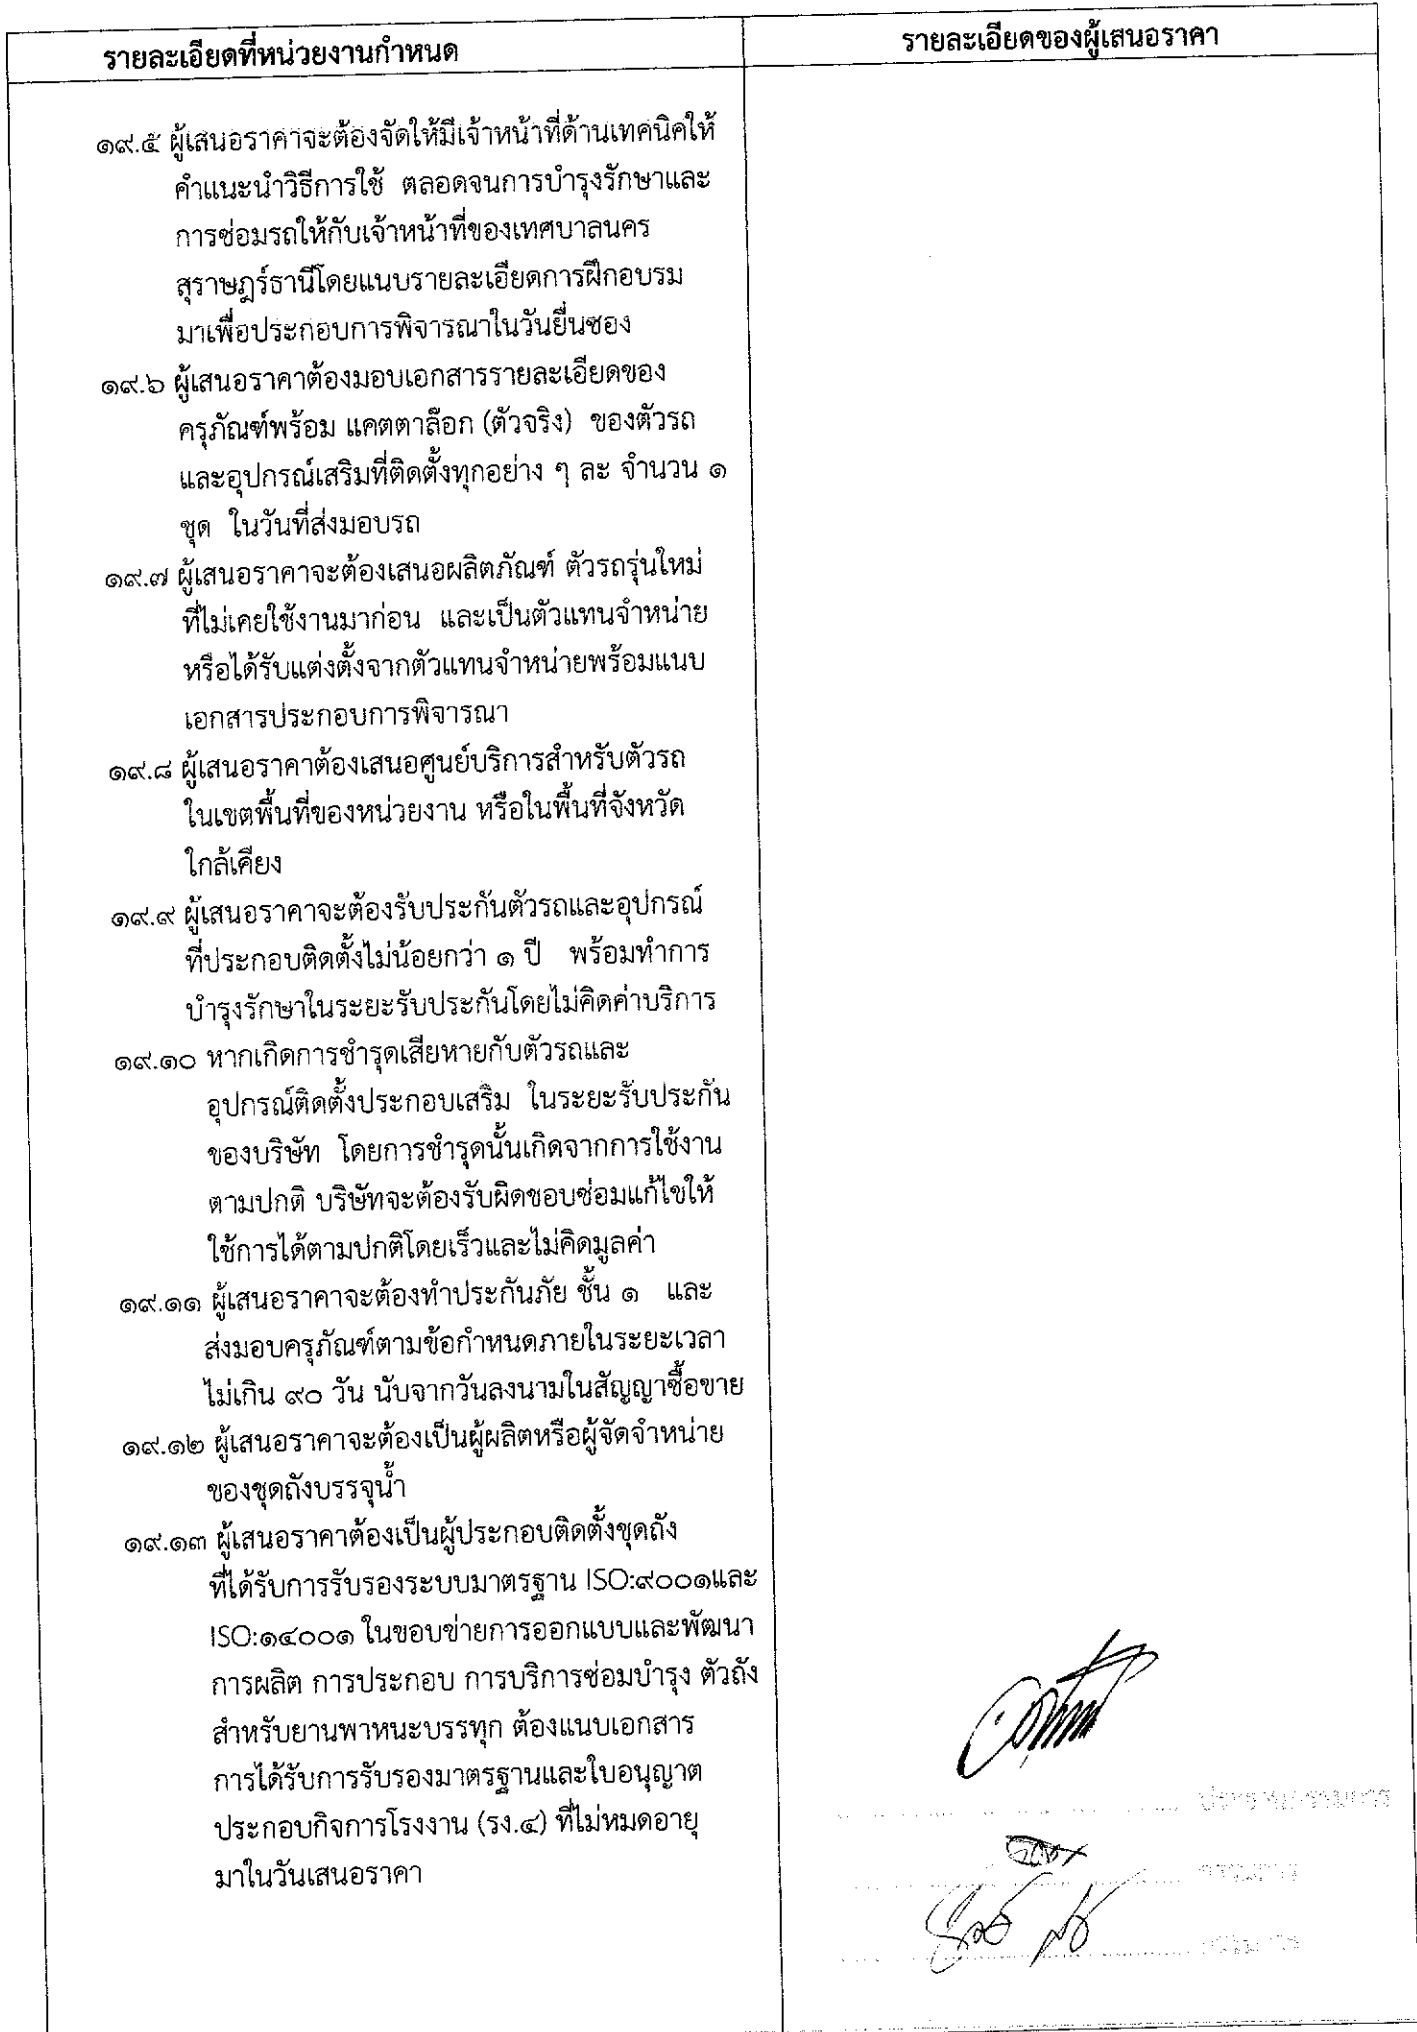 รายละเอียดที่หน่วยงานกำหนด
รายละเอียดของผู้เสนอราคา
๑๙.๕ ผู้เสนอราคาจะต้องจัดให้มีเจ้าหน้าที่ด้านเทคนิคให้
คำแนะนำวิธีการใช้ ตลอดจนการบำรุงรักษาและ
การซ่อมรถให้กับเจ้าหน้าที่ของเทศบาลนคร
สุราษฎร์ธานีโดยแนบรายละเอียดการฝึกอบรม
มาเพื่อประกอบการพิจารณาในวันยื่นซอง
๑๙.๖ ผู้เสนอราคาต้องมอบเอกสารรายละเอียดของ
ครุภัณฑ์พร้อม แคตตาล๊อก (ตัวจริง) ของตัวรถ
และอุปกรณ์เสริมที่ติดตั้งทุกอย่าง ๆ ละ จำนวน ๑
ชุด ในวันที่ส่งมอบรถ
๑๙.๗ ผู้เสนอราคาจะต้องเสนอผลิตภัณฑ์ ตัวรถรุ่นใหม่
ที่ไม่เคยใช้งานมาก่อน และเป็นตัวแทนจำหน่าย
หรือได้รับแต่งตั้งจากตัวแทนจำหน่ายพร้อมแนบ
เอกสารประกอบการพิจารณา
๑๙.๘ ผู้เสนอราคาต้องเสนอศูนย์บริการสำหรับตัวรถ
ในเขตพื้นที่ของหน่วยงาน หรือในพื้นที่จังหวัด
ใกล้เคียง
๑๙.๙ ผู้เสนอราคาจะต้องรับประกันตัวรถและอุปกรณ์
ที่ประกอบติดตั้งไม่น้อยกว่า ๑ ปี พร้อมทำการ
บำรุงรักษาในระยะรับประกันโดยไม่คิดค่าบริการ
๑๙.๑๐ หากเกิดการชำรุดเสียหายกับตัวรถและ
อุปกรณ์ติดตั้งประกอบเสริม ในระยะรับประกัน
ของบริษัท โดยการชำรุดนั้นเกิดจากการใช้งาน
ตามปกติ บริษัทจะต้องรับผิดชอบซ่อมแก้ไขให้
ใช้การได้ตามปกติโดยเร็วและไม่คิดมูลค่า
๑๙.๑๑ ผู้เสนอราคาจะต้องทำประกันภัย ชั้น ๑ และ
ส่งมอบครุภัณฑ์ตามข้อกำหนดภายในระยะเวลา
ไม่เกิน ๙๐ วัน นับจากวันลงนามในสัญญาซื้อขาย
๑๙.๑๒ ผู้เสนอราคาจะต้องเป็นผู้ผลิตหรือผู้จัดจำหน่าย
ของชุดถังบรรจุน้ำ
๑๙.๑๓ ผู้เสนอราคาต้องเป็นผู้ประกอบติดตั้งชุดถัง
ที่ได้รับการรับรองระบบมาตรฐาน ISO:๙๐๐๑และ
ISO:๑๔๐๐๑ ในขอบข่ายการออกแบบและพัฒนา
การผลิต การประกอบ การบริการซ่อมบำรุง ตัวถัง
สำหรับยานพาหนะบรรทุก ต้องแนบเอกสาร
การได้รับการรับรองมาตรฐานและใบอนุญาต
ประกอบกิจการโรงงาน (รง.๔) ที่ไม่หมดอายุ
มาในวันเสนอราคา
ประธานกรรมการ
กรรมการ
กรรมการ